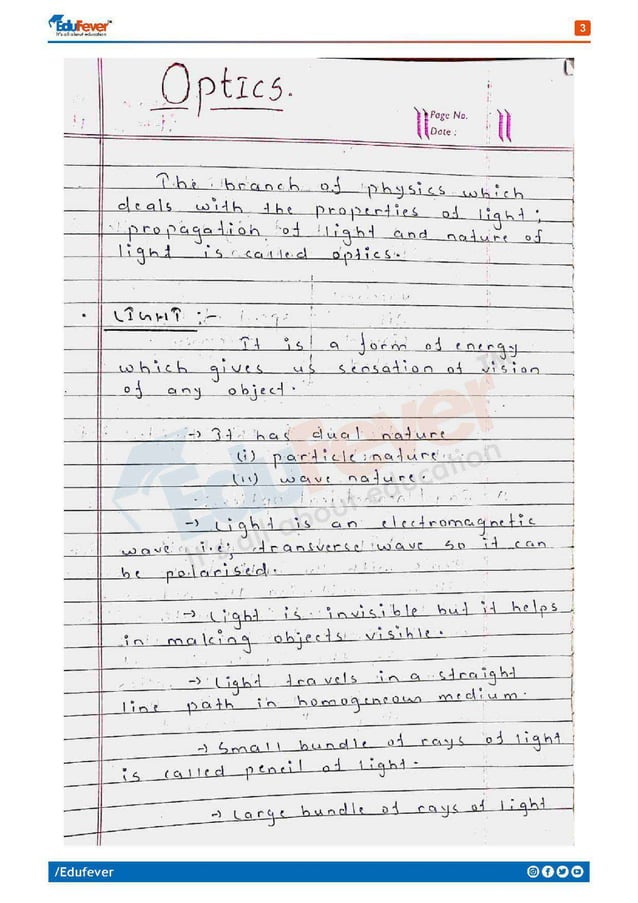 EduFever
It's all about education
3
Optics.
Page No.
Date :
The branch of physics which
deals with the properties of light ;
propagation of light and nature of
light is called optics.
• LIGHT :-
It is a form of energy
which gives us sensation of vision
of any object.
→ It has dual nature
(i) particle nature
(ii) wave nature.
→ Light is an electromagnetic
wave i.e; transverse wave so it can
be polarised.
→ Light is invisible but it helps
in making objects visible.
→ Light travels in a straight
line path in homogeneous medium.
→ Small bundle of rays of light
is called pencil of light.
→ Large bundle of rays of light
EduFever™
It's all about education
/Edufever